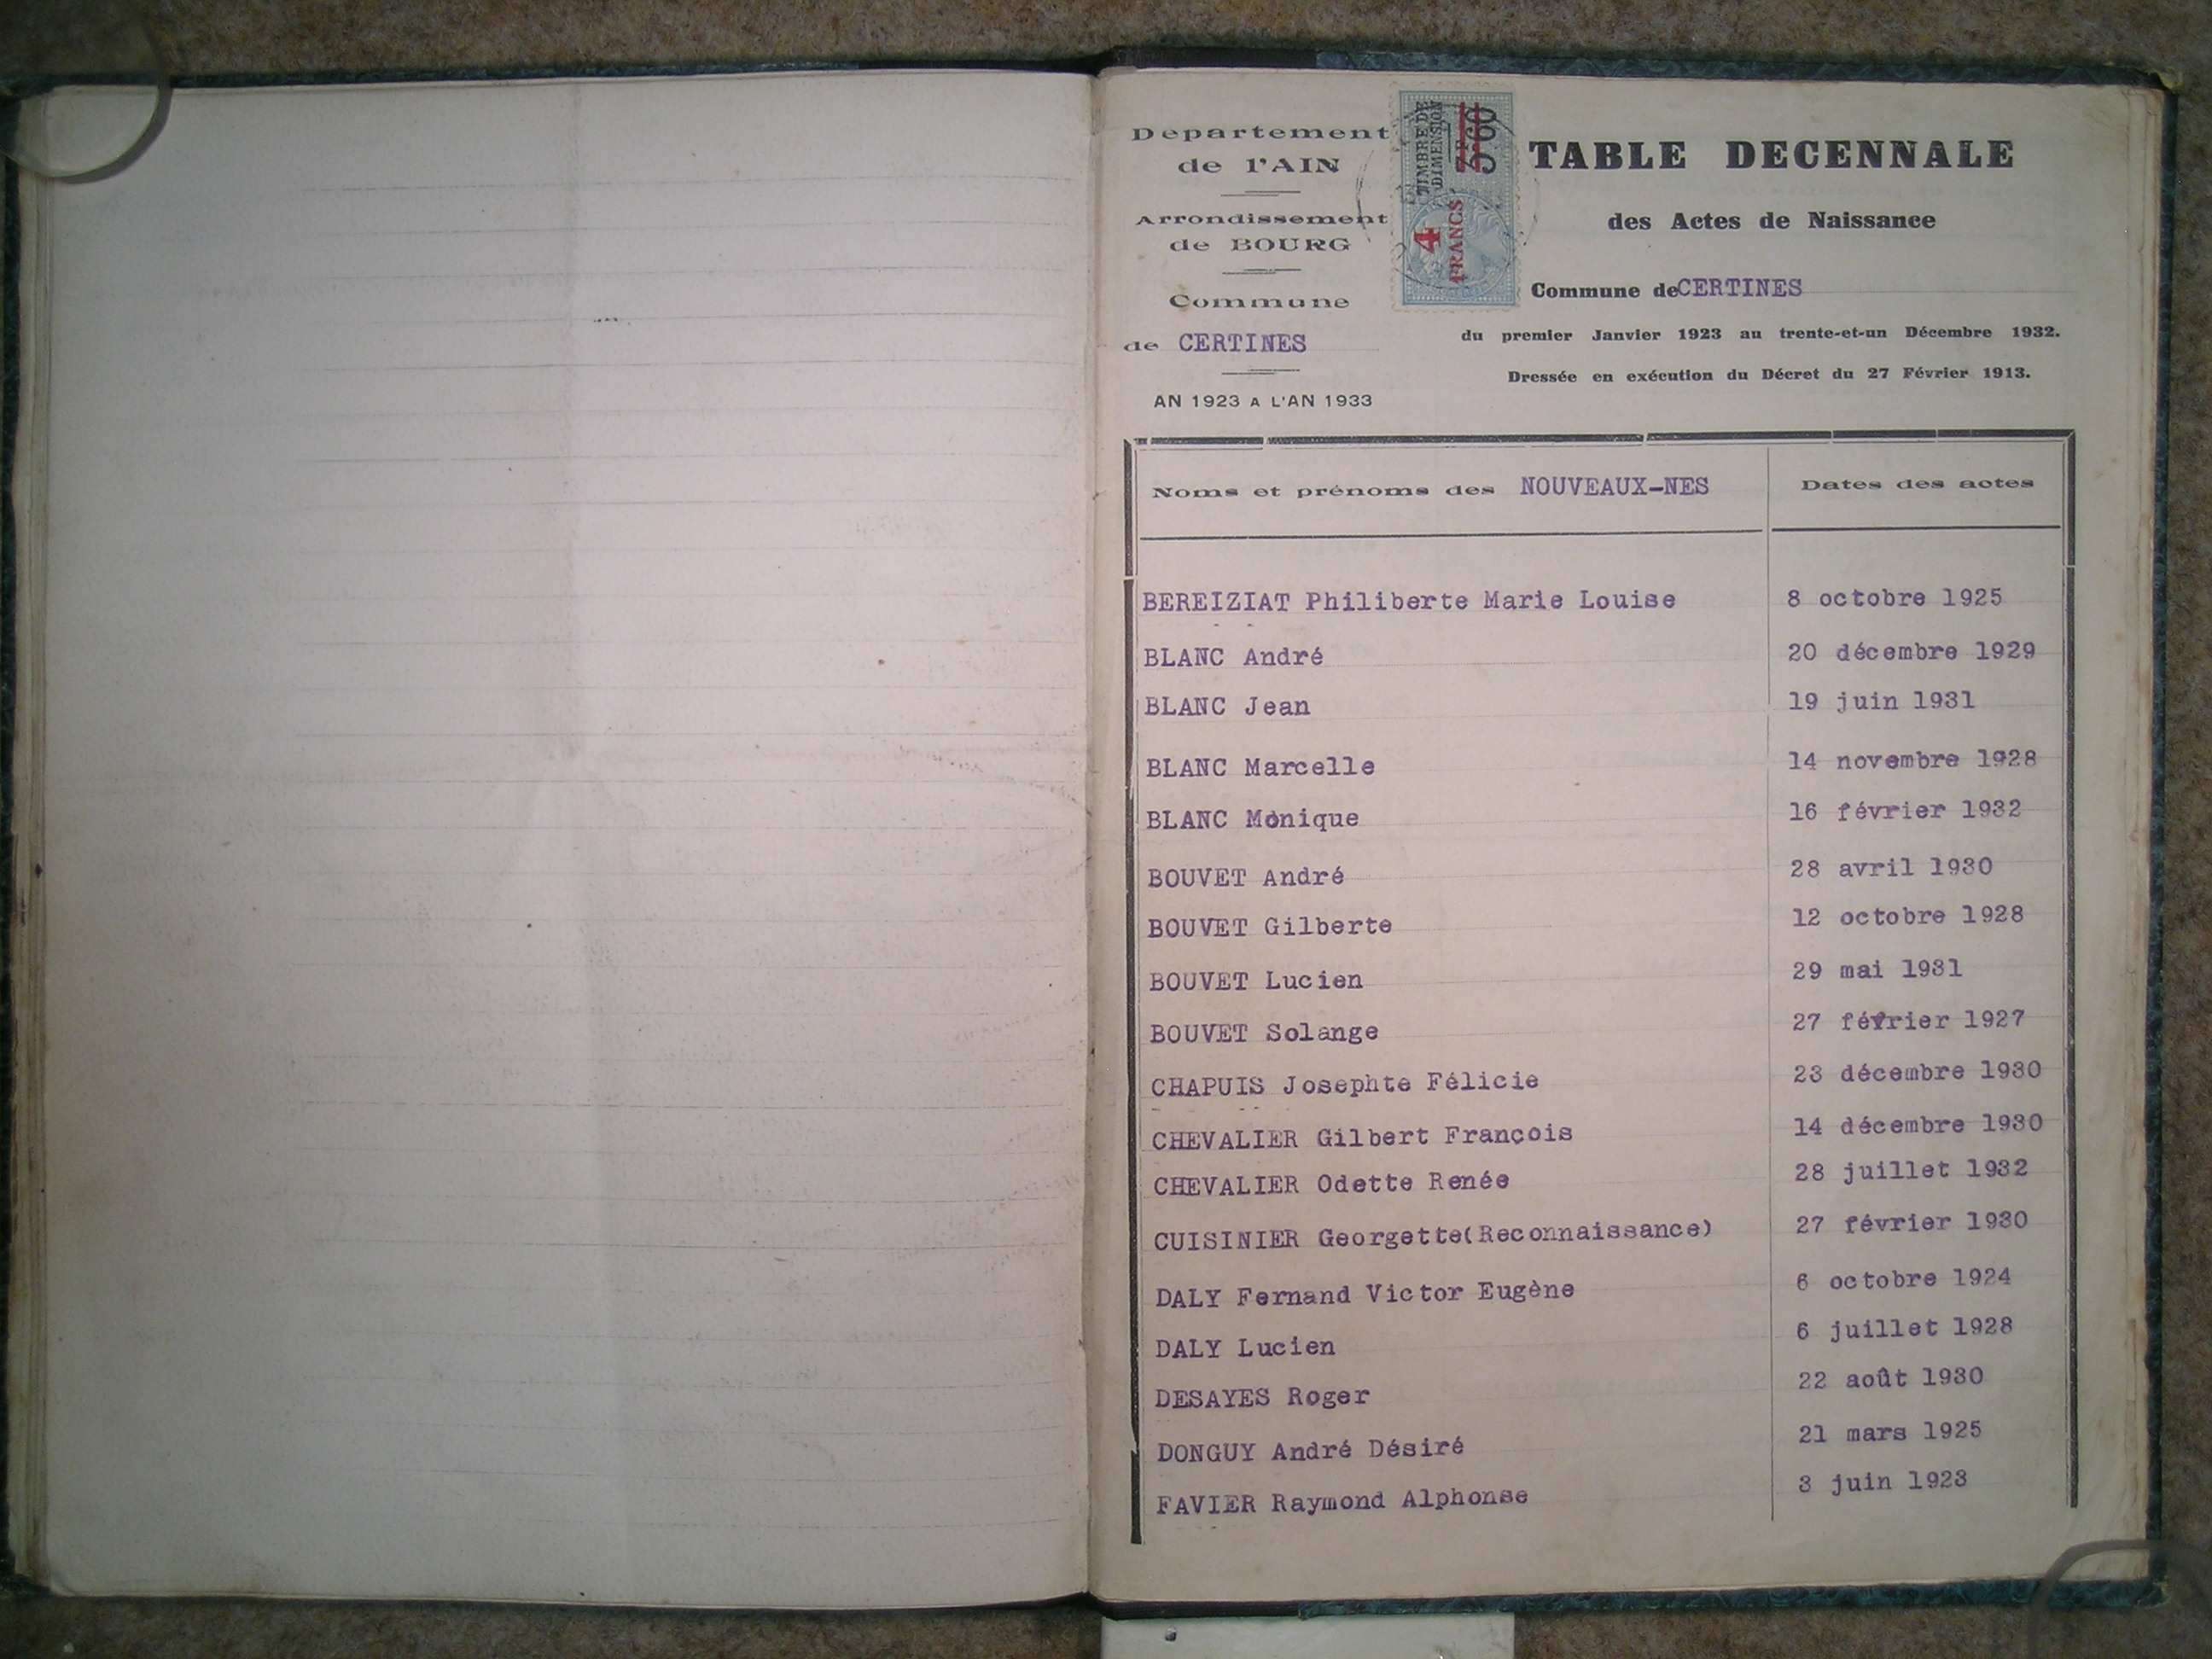 Departement
de l'AIN
Arrondissement
de BOURG
Commune
de CERTINES
AN 1923 A L'AN 1933
TIMBRE DE
DIMENSION
4
FRANCS
TABLE DECENNALE
des Actes de Naissance
Commune de CERTINES
du premier Janvier 1923 au trente-et-un Décembre 1932.
Dressée en exécution du Décret du 27 Février 1913.
Noms et prénoms des NOUVEAUX-NES Dates des actes
BEREIZIAT Philiberte Marie Louise 8 octobre 1925
BLANC André 20 décembre 1929
BLANC Jean 19 juin 1931
BLANC Marcelle 14 novembre 1928
BLANC Monique 16 février 1932
BOUVET André 28 avril 1930
BOUVET Gilberte 12 octobre 1928
BOUVET Lucien 29 mai 1931
BOUVET Solange 27 février 1927
CHAPUIS Josephte Félicie 23 décembre 1930
CHEVALIER Gilbert François 14 décembre 1930
CHEVALIER Odette Renée 28 juillet 1932
CUISINIER Georgette(Reconnaissance) 27 février 1930
DALY Fernand Victor Eugène 6 octobre 1924
DALY Lucien 6 juillet 1928
DESAYES Roger 22 août 1930
DONGUY André Désiré 21 mars 1925
FAVIER Raymond Alphonse 3 juin 1923